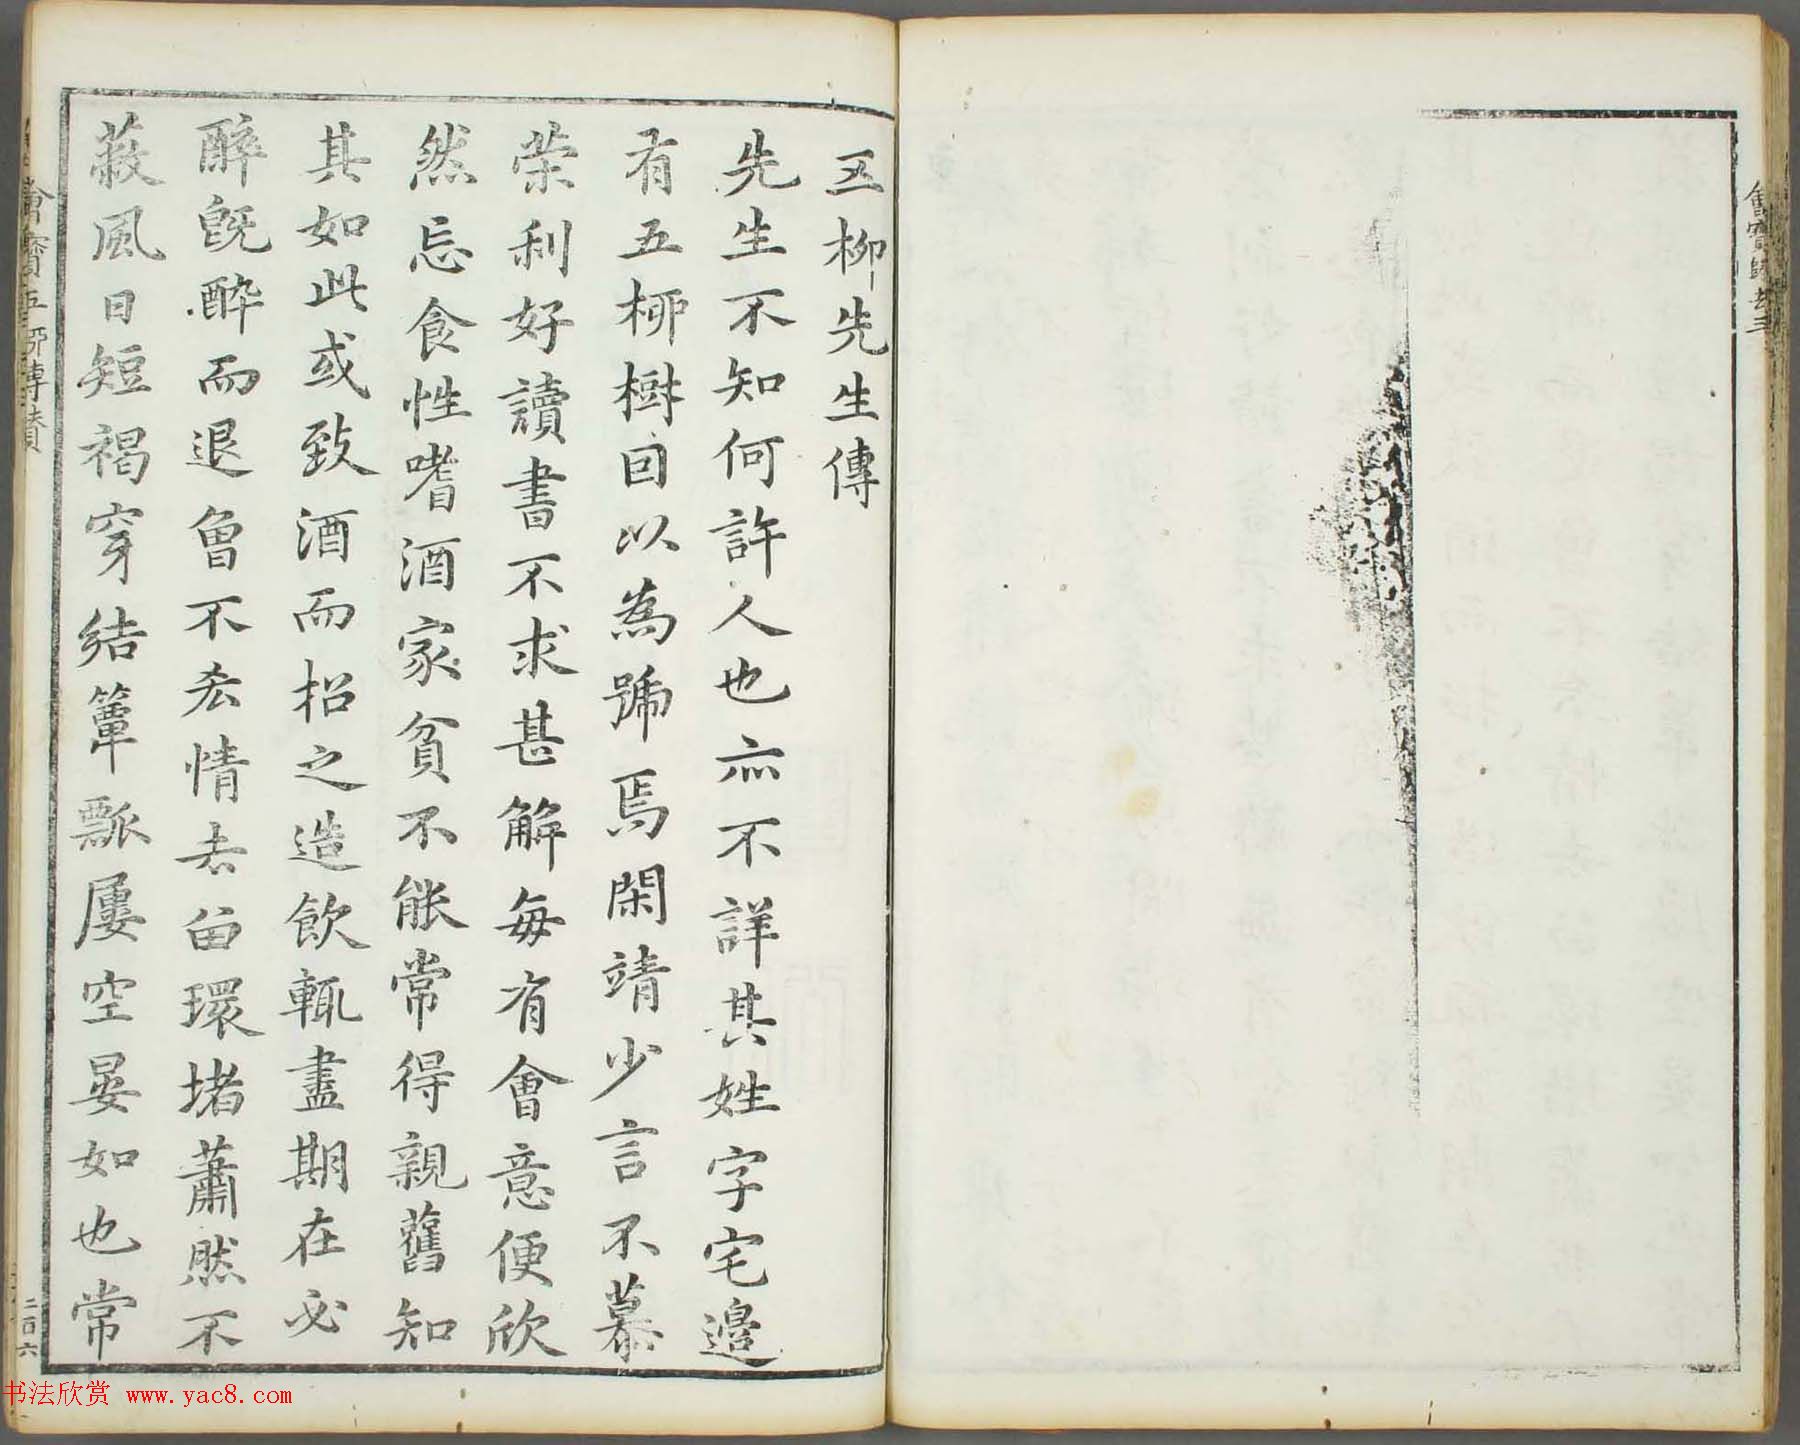 五柳先生傳
先生不知何許人也亦不詳其姓字宅邊
有五柳樹因以為號焉閑靖少言不慕
荣利好讀書不求甚解每有會意便欣
然忘食性嗜酒家貧不能常得親舊知
其如此或致酒而招之造飲輒盡期在必
醉既醉而退曾不吝情去留環堵蕭然不
蔽風日短褐穿結簞瓢屢空晏如也常
二百六
书法欣赏 www.yac8.com